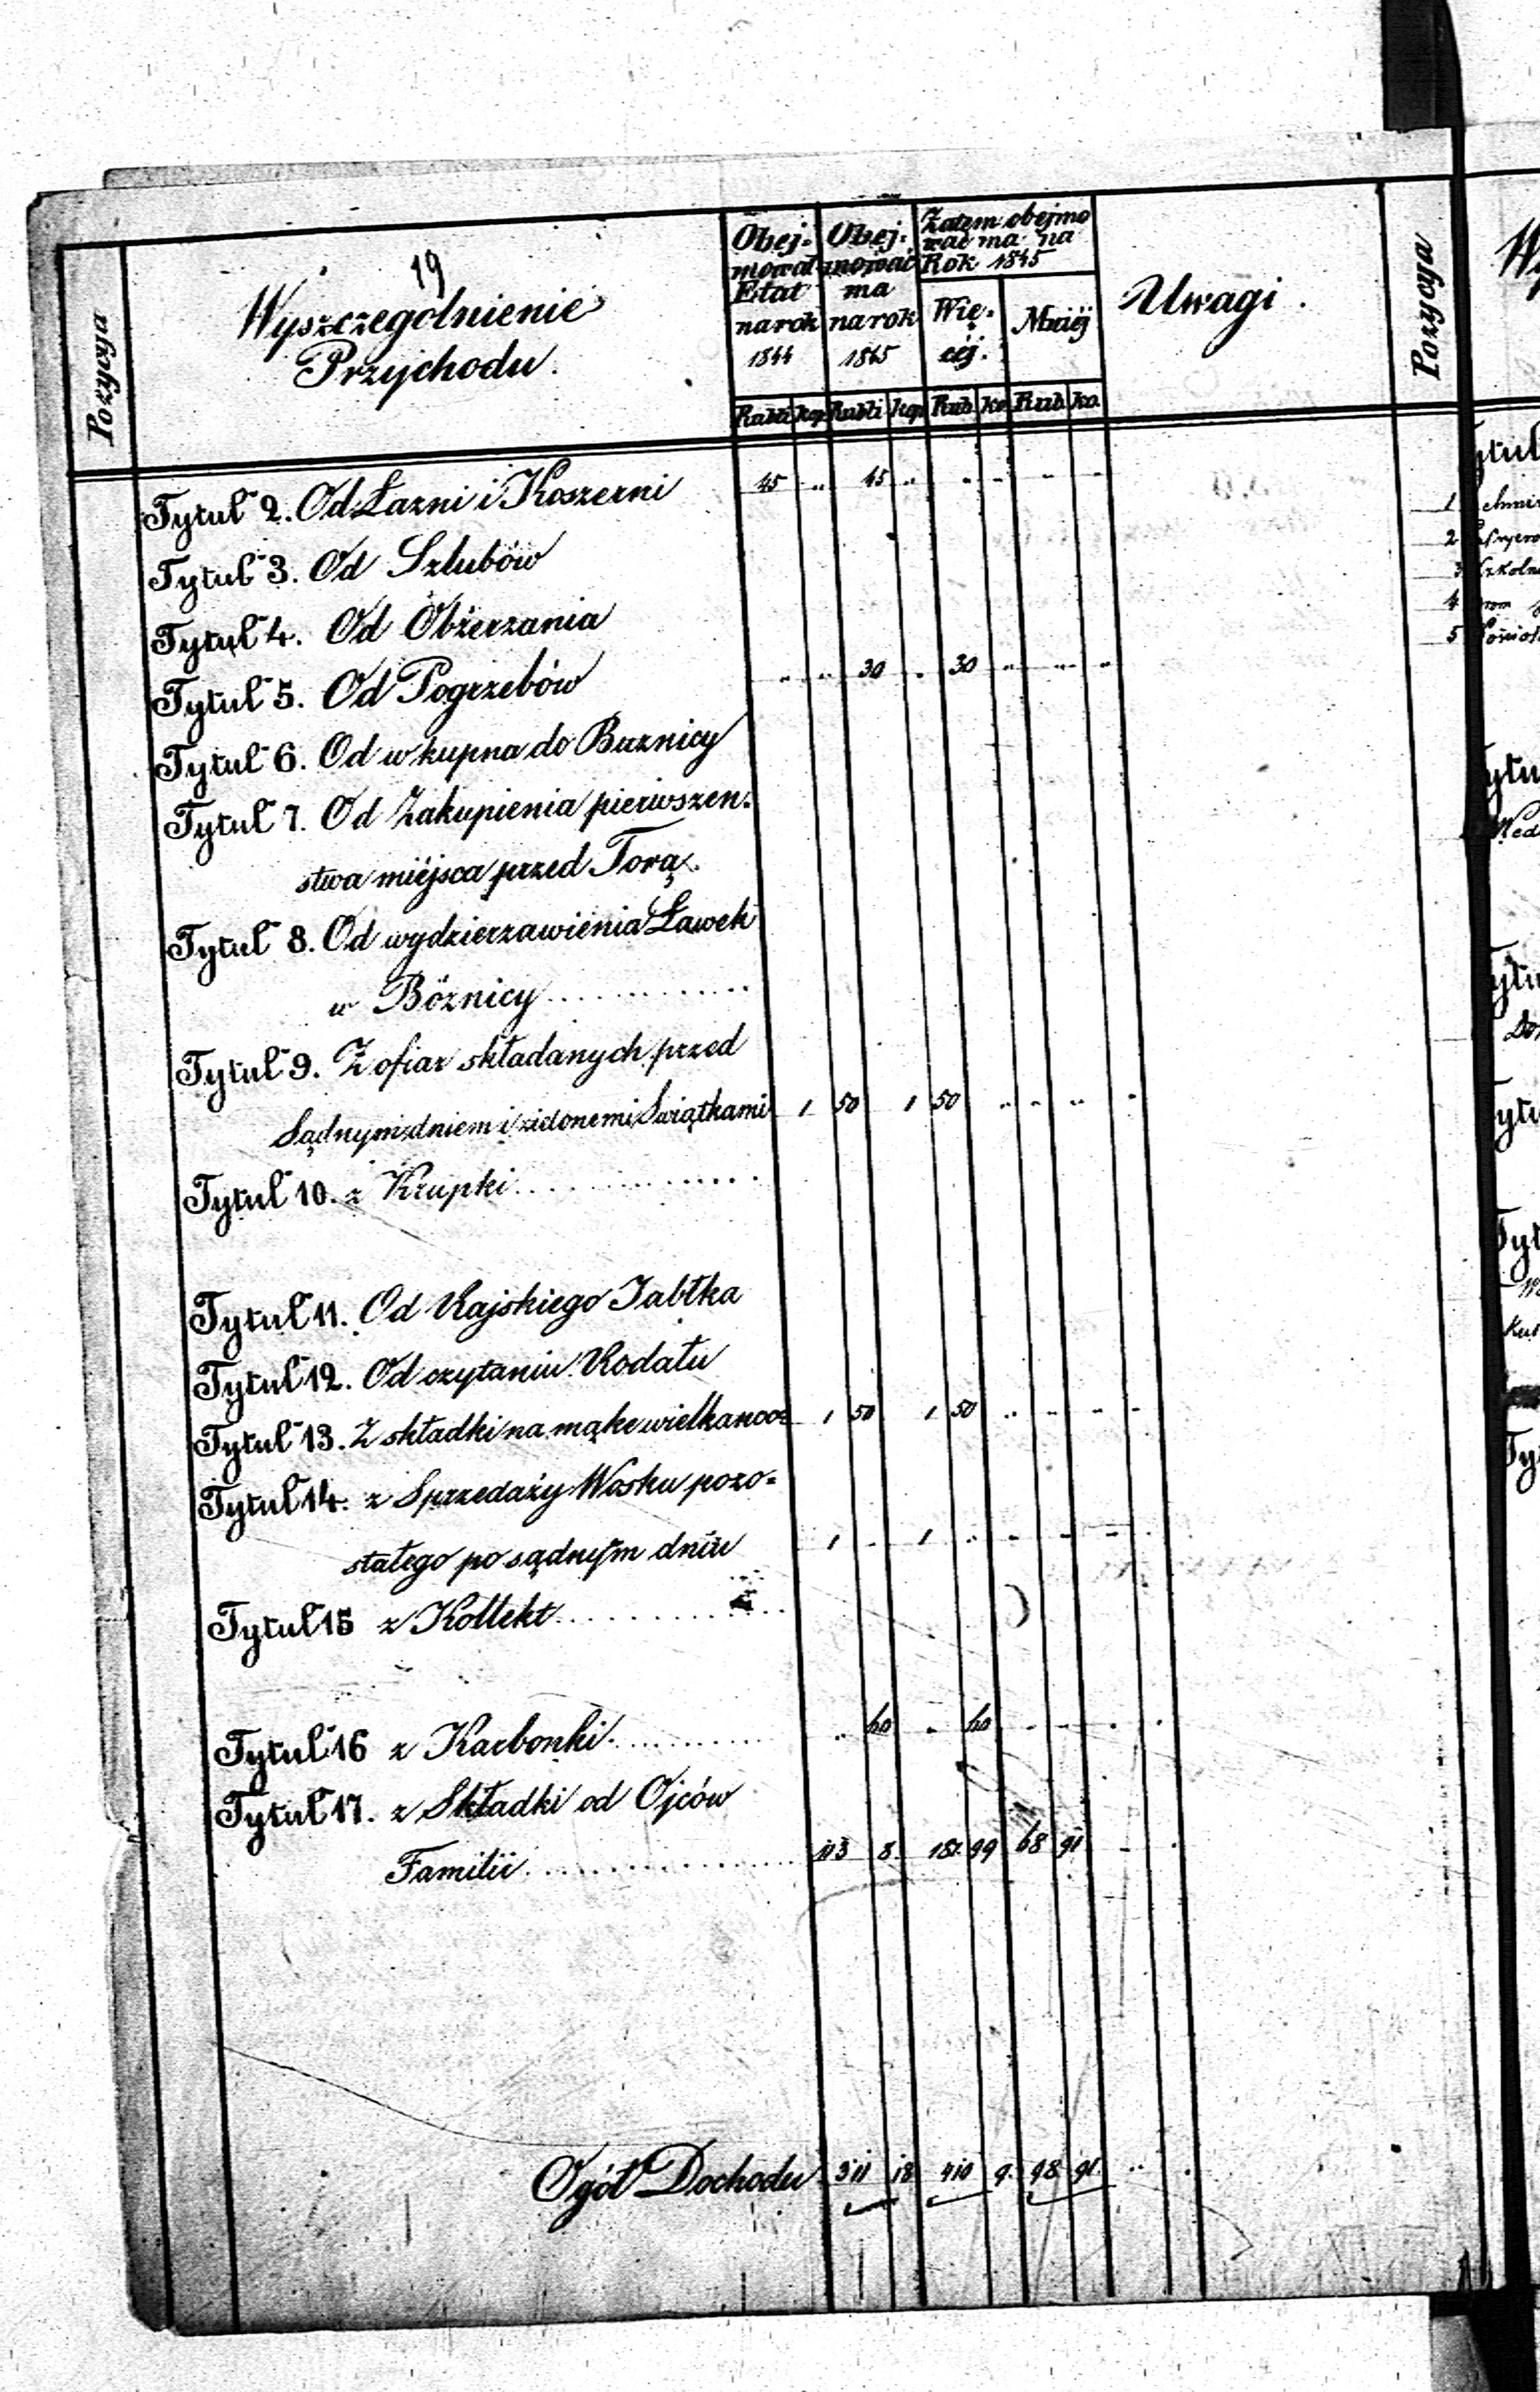 19
Pozycya
Wyszczególnienie
Przychodu.
Obej-
mował
Etat
na rok
1844
Obej-
mować
ma
na rok
1845
Zatem obejmo
wać ma na
Rok 1845
Wię-
céj.
Mniéj
Uwagi.
Pozycya
Rubli kop Rubli kop Rub. ko Rub. ko.
Tytuł 2. Od Łazni i Koszerni 45 .. 45 .. .. .. .. ..
Tytuł 3. Od Szlubów
Tytuł 4. Od Obżerzania
Tytuł 5. Od Pogrzebów .. .. 30 . 30 .. .. ..
Tytuł 6. Od wkupna do Buznicy
Tytuł 7. Od Zakupienia pierwszen-
stwa miéjsca przed Torą.
Tytuł 8. Od wydzierzawiénia Ławek
w Bóznicy
Tytuł 9. Z ofiar składanych przed
Sądnym dniem i zidonemi Swiątkami 1 50 1 50 .. .. .. .
Tytuł 10. z Krupki
Tytuł 11. Od Rajskiego Jabłka
Tytuł 12. Od czytaniu Rodału
Tytuł 13. Z składki na mąke wielkanoc 1 50 1 50 .. .. .. ..
Tytuł 14. z Sprzedaży Wosku pozo-
stałego po sądnym dniu 1 .. 1 .. .. .. ..
Tytuł 15 z Kollekt
Tytuł 16 z Karbonki .. 60 .. 60 .. .. . .
Tytuł 17. z Składki od Ojców
Familii 113 8. 181. 99 68 91 .. .
Ogół Dochodu 311 18 410 9. 98 91. .. .
1
2
3
4
5